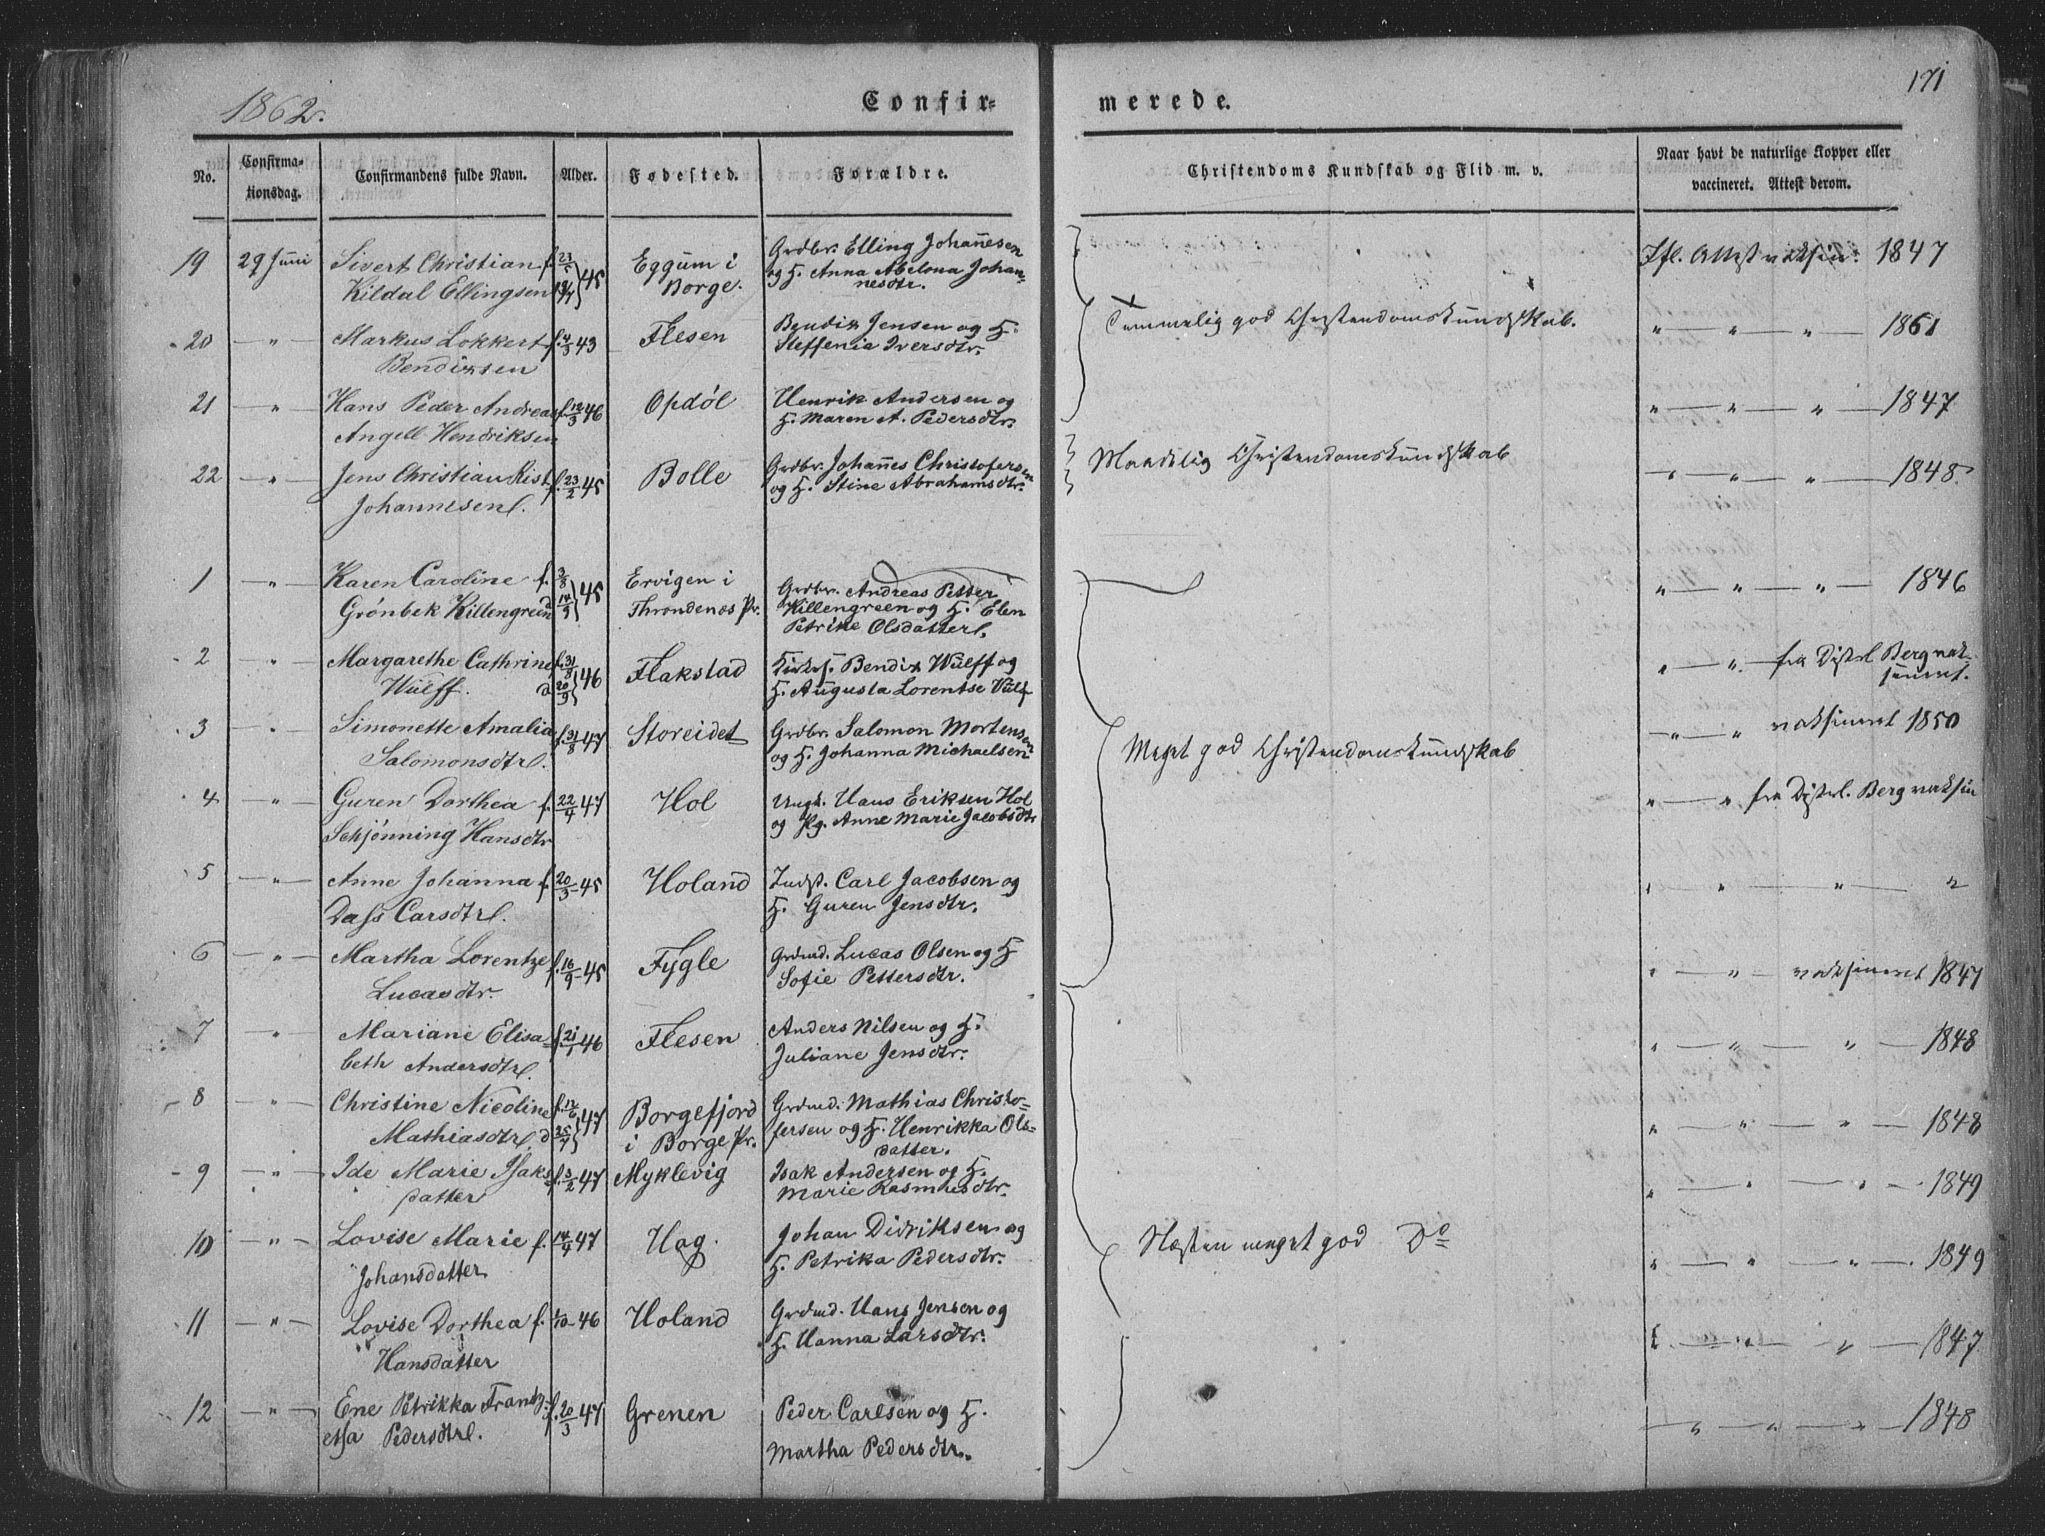 1862.
Confir=
merede.
171
No.
Confirma-
tionsdag.
Confirmandens fulde Navn.
Alder.
Fødested.
Forældre.
Christendoms Kundskab og Flid m. v.
Naar havt de naturlige Kopper eller
vaccineret. Attest derom.
19 29 Juni Sivert Christian f. 23/5 45 Eggum i Grdbr. Elling Johannesen
Kildal Ellingsen Borge. og H. Anna Abelona Johan-
nesdtr.
Ifl. Attest vaksin. 1847
20 — " — Markus Lokkert f. 4/3 43 Flesen Bendix Jensen og H.
Bendixsen Steffenie Iversdtr.
Temmelig god Christendomskundskab.
" — " — " — 1861
21 — " — Hans Peder Andreas f. 12/3 46 Opdøl Henrik Andersen og
Angell Hendriksen H. Maren A. Pedersdtr.
" — " — " — 1847
22 — " — Jens Christian Rist f. 23/2 45 Bolle Grdbr. Johannes Christofersen
Johannesen. og H. Stine Abrahamsdtr.
Maadelig Christendomskundskab
" — " — " — 1848
1 — " — Karen Caroline f. 3/8 45 Ervigen i Grdbr. Andreas Petter
Grønbek Killengreen d. 14/9 Throndenæs Pr. Killengreen og H. Elen
Petrike Olsdatter.
" — " — " — 1846
2 — " — Margarethe Cathrine f. 31/8 46 Flakstad Kirks. Bendix Wulff og
Wulff. d. 20/9 H. Augusta Lorentse Wulf
" — " fra Distrl. Berg vak-
sineret.
3 — " — Simonette Amalia f. 31/8 47 Storeidet Grdbr. Salomon Mortensen
Salomonsdtr. og H. Johanna Michaelsen
Meget god Christendomskundskab
" — " vaksineret 1850
4 — " — Guren Dorthea f. 22/4 47 Hol Ungk. Hans Eriksen Hol
Schjønning Hansdtr og Pg. Anne Marie Jacobsdtr
" — " fra Distrl. Berg vaksin
5 — " — Anne Johanna f. 20/3 45 Holand Indst. Carl Jacobsen og
Dass Carsdtr. H. Guren Jensdtr.
" — " — " — "
6 — " — Martha Lorentze f. 16/9 45 Fygle Grdmd. Lucas Olsen og H
Lucasdtr. Sofie Pettersdtr.
" — " — vaksineret 1847
7 — " — Mariane Elisa= f. 21/1 46 Flesen Anders Nilsen og H.
beth Andersdtr. Juliane Jensdtr.
" — " — " — 1848
8 — " — Christine Nicoline f. 12/6 47 Borgefjord Grdmd. Mathias Christo=
Mathiasdtr. d. 25/7 i Borge Pr. fersen og H. Henrikka Ols=
datter.
" — " — " — 1848
9 — " — Ide Marie Isaks= f. 3/2 47 Myklevig Isak Andersen og H.
datter Marie Rasmusdtr.
" — " — " — 1849
10 — " — Lovise Marie f. 14/4 47 Hag. Johan Didriksen og
Johansdatter H. Petrika Pedersdtr.
Næsten meget god Do
" — " — " — 1849
11 — " — Lovise Dorthea f. 1/10 46 Holand Grdmd. Hans Jensen og
Hansdatter H. Hanna Larsdtr.
" — " — " — 1847
12 — " — Ene Petrikka Frantz- f. 20/3 47 Grenen Peder Carlsen og H.
Pedersdtr. Martha Pedersdtr.
" — " — " — 1848